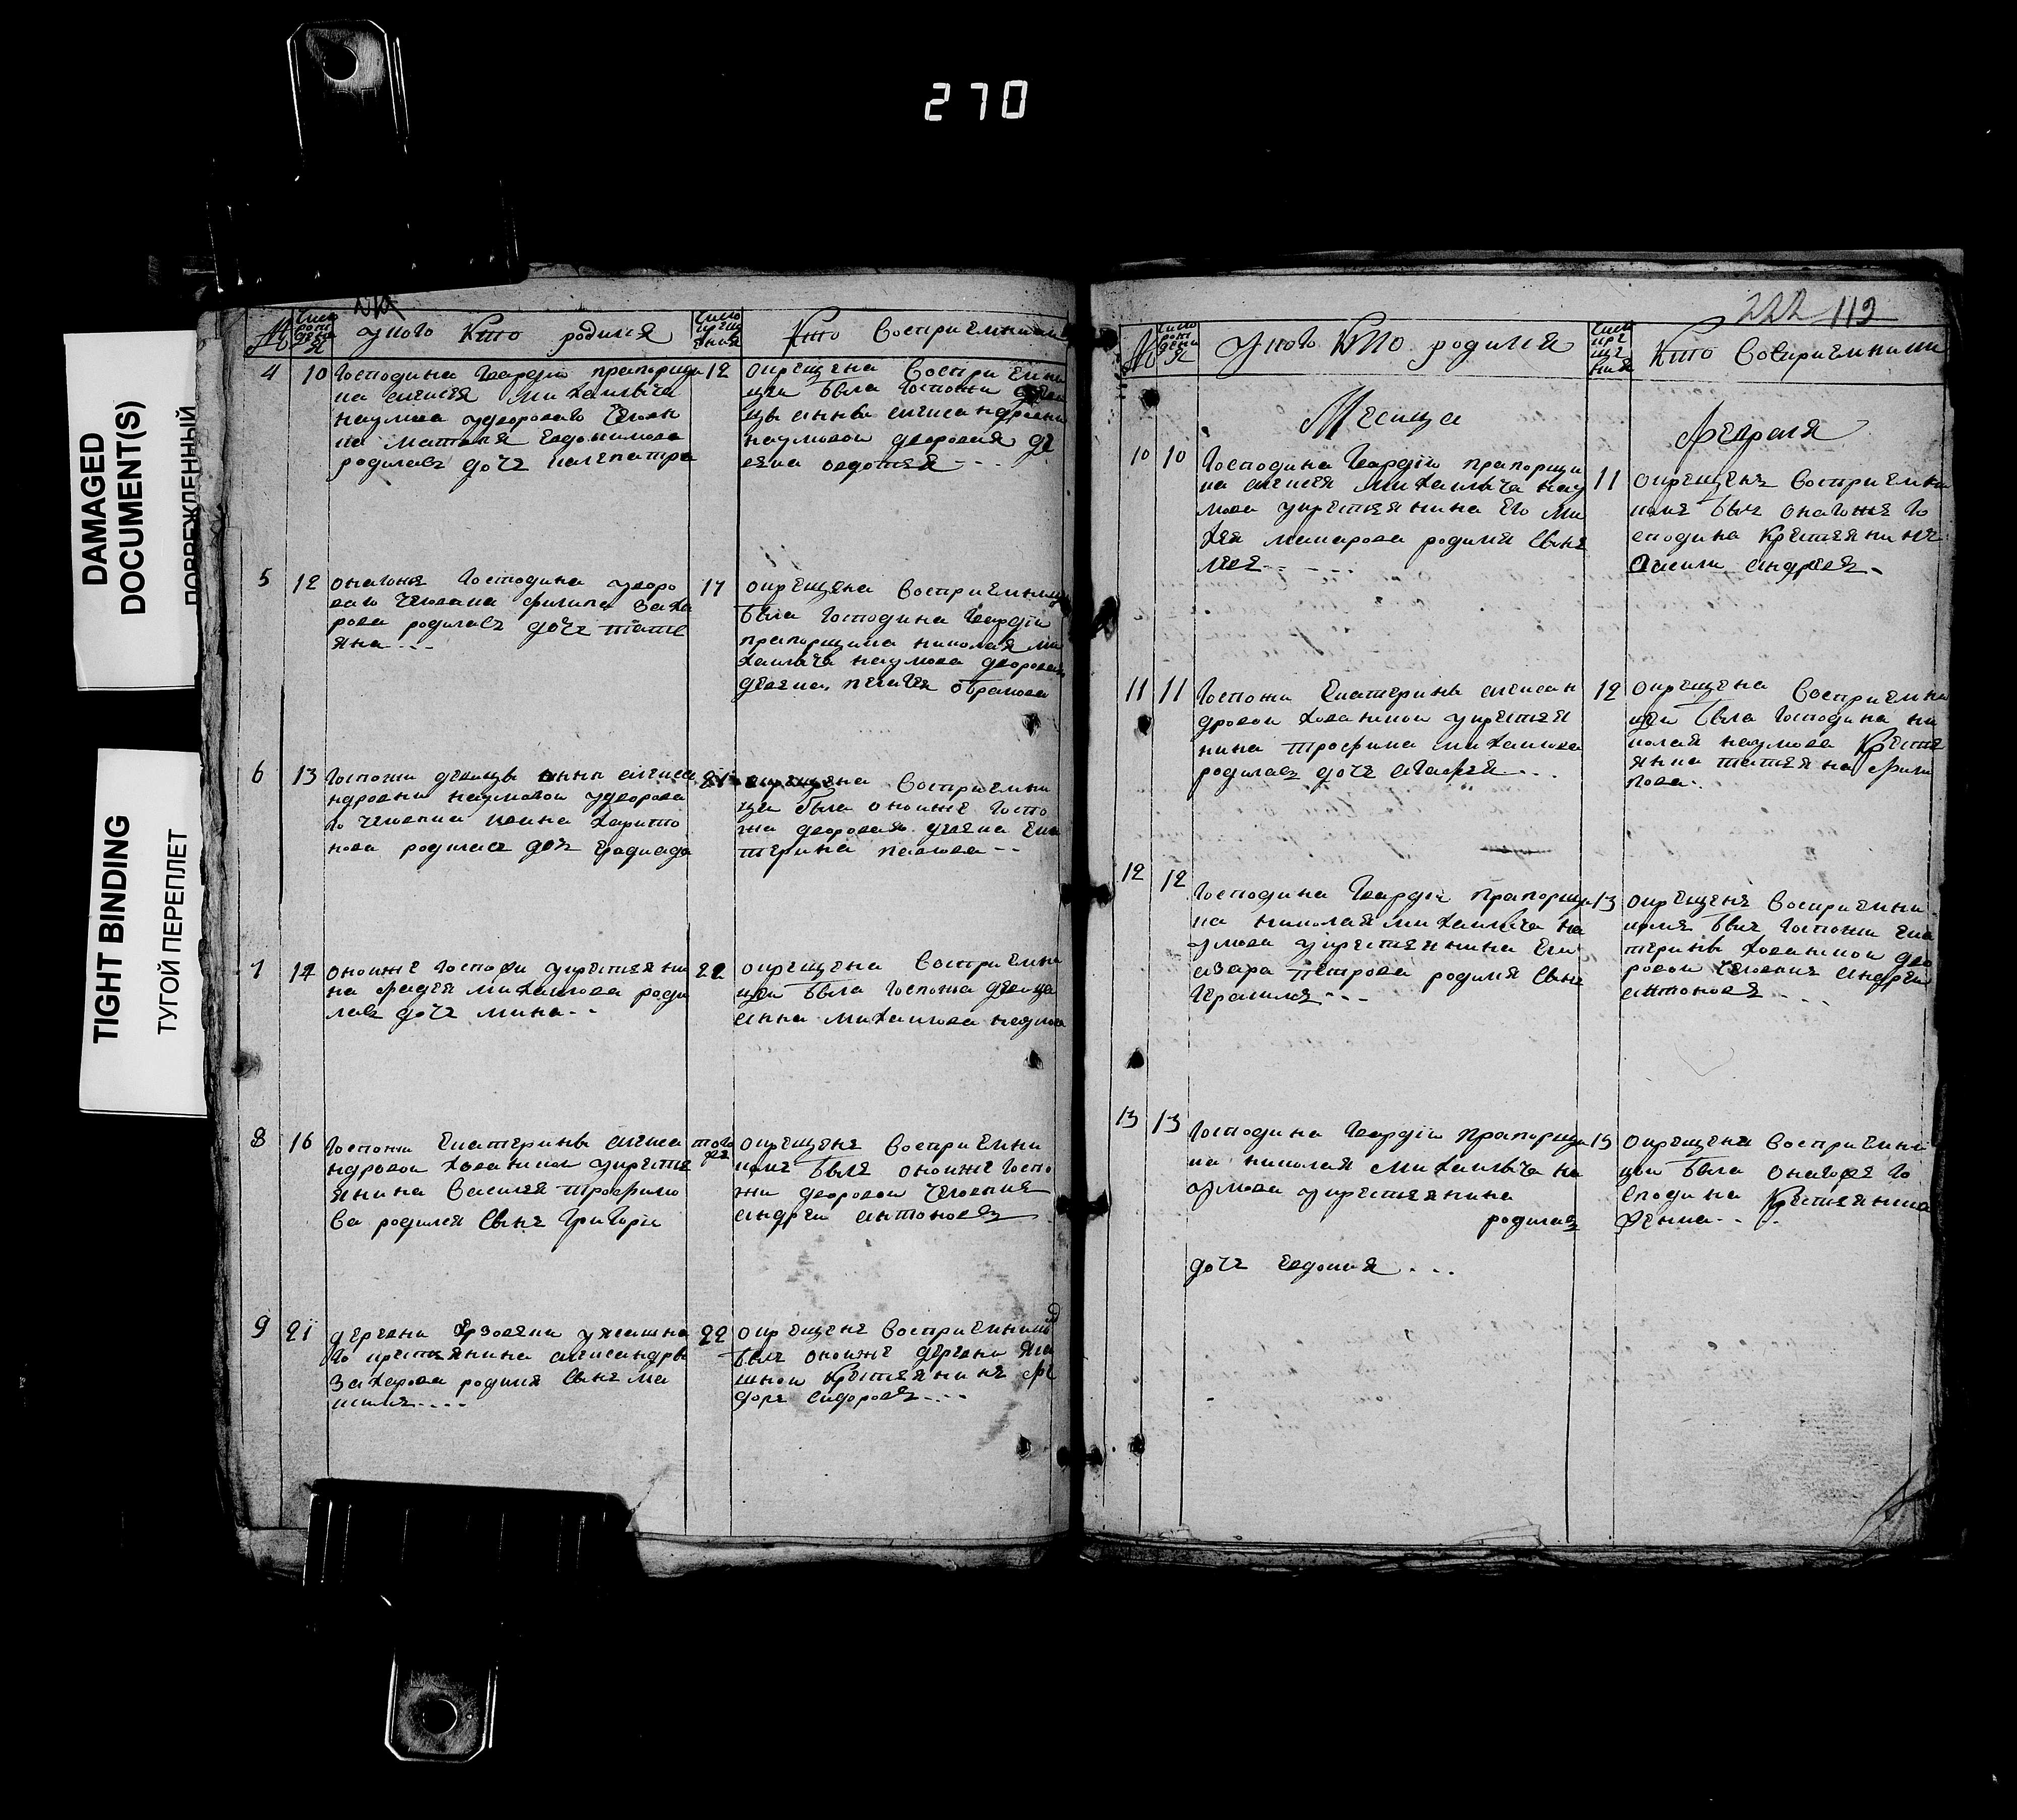 270
DAMAGED
DOCUMENT(S)
ПОВРЕЖДЕННЫЙ
TIGHT BINDING
ТУГОЙ ПЕРЕПЛЕТ
№ число рождения у кого кто родился число крещения кто восприемники
4 10 Господина Гвардiи прапорщи
ка алексея михаилыча
наумова удвороваго челов
ка матвея евдокимова
родилась дочь клеопатра
12 окрещена восприемни
цеи была госпожи деви
цы анны александровны
наумовои дворовая де
вка авдотея
5 12 онагоже господина уворо
ваго человека филипа заха
рова родилась дочь татя
яна
17 окрещена восприемницеи
была господина Гвардiи
прапорщика николая ми
хаилыча наумова дворовая
девка пелагея
6 13 госпожи девицы анны алекса
ндровны наумовои удворова
го человека ивана харито
нова родилась дочь
окрещена восприемни
цеи была оноиже госпо
жи дворовая девка ека
терина павлова
7 17 оноиже госпожи укрестьяни
на фадея михаилова роди
лась дочь
22 окрещена восприемни
цеи была госпожа девица
анна михаилова наумова
8 16 госпожи екатерины алекса
ндровои хованскои укрестья
янина василея трофимо
ва родился сынъ григореи
тогоже
окрещенъ восприемни
комъ былъ оноиже госпо
жи дворовои человекъ
андреи антоновъ
9 21 деревни
го крестьянина александры
захарова родился сынъ ма
ксимъ
22 окрещенъ восприемникомъ
былъ оноиже деревни яса
шнои крестьянинъ фе
доръ сидоровъ
222 112
№ число рождения у кого кто родился число крещения кто восприемники
Месяца Февраля
10 10 Господина Гвардiи прапорщи
ка алексея михаилыча нау
мова укрестьянина его ми
хея макарова родился сынъ
11 окрещенъ восприемни
комъ былъ онагоже го
сподина крестьянинъ
василеи андреевъ
11 11 Госпожи екатерины алексан
дровои хованскои укрестья
нина трофима михаилова
родилась дочь агафея
12 окрещена восприемни
цеи была господина ни
колая наумова крестья
янка татяна фили
пова
12 12 Господина Гвардiи прапорщи
ка николая михаилыча на
умова укрестьянина ели
азара петрова родился сынъ
герасимъ
13 окрещенъ восприемни
комъ былъ госпожи ека
терины хованскои дво
ровои человекъ андреи
антоновъ
13 13 Господина Гвардiи прапорщи
ка николая михаилыча на
умова укрестьянина
родилась
дочь евдокия
15 окрещена восприемни
цеи была онагоже го
сподина крестьянина